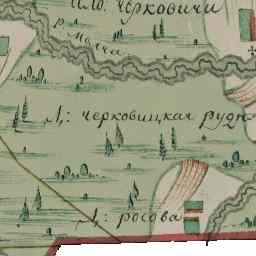 село: черковичи
р. Молча
Д: черковицкая рудн
Д: росова